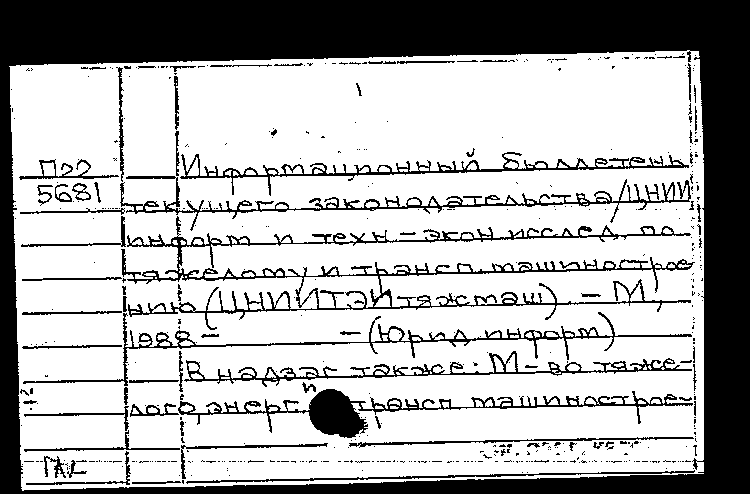 П22 Информационный бюллетень
5681 текущего законодательства/ЦНИИ
информ и техн-экон исслед. по
тяжелому и трансп. машиностроe
нию (ЦНИИТЭИтяжмаш). - М,
1988- - (Юрид. информ)
В надзаг также: М-во тяже-
лого, энерг. и трансп машиностроe-